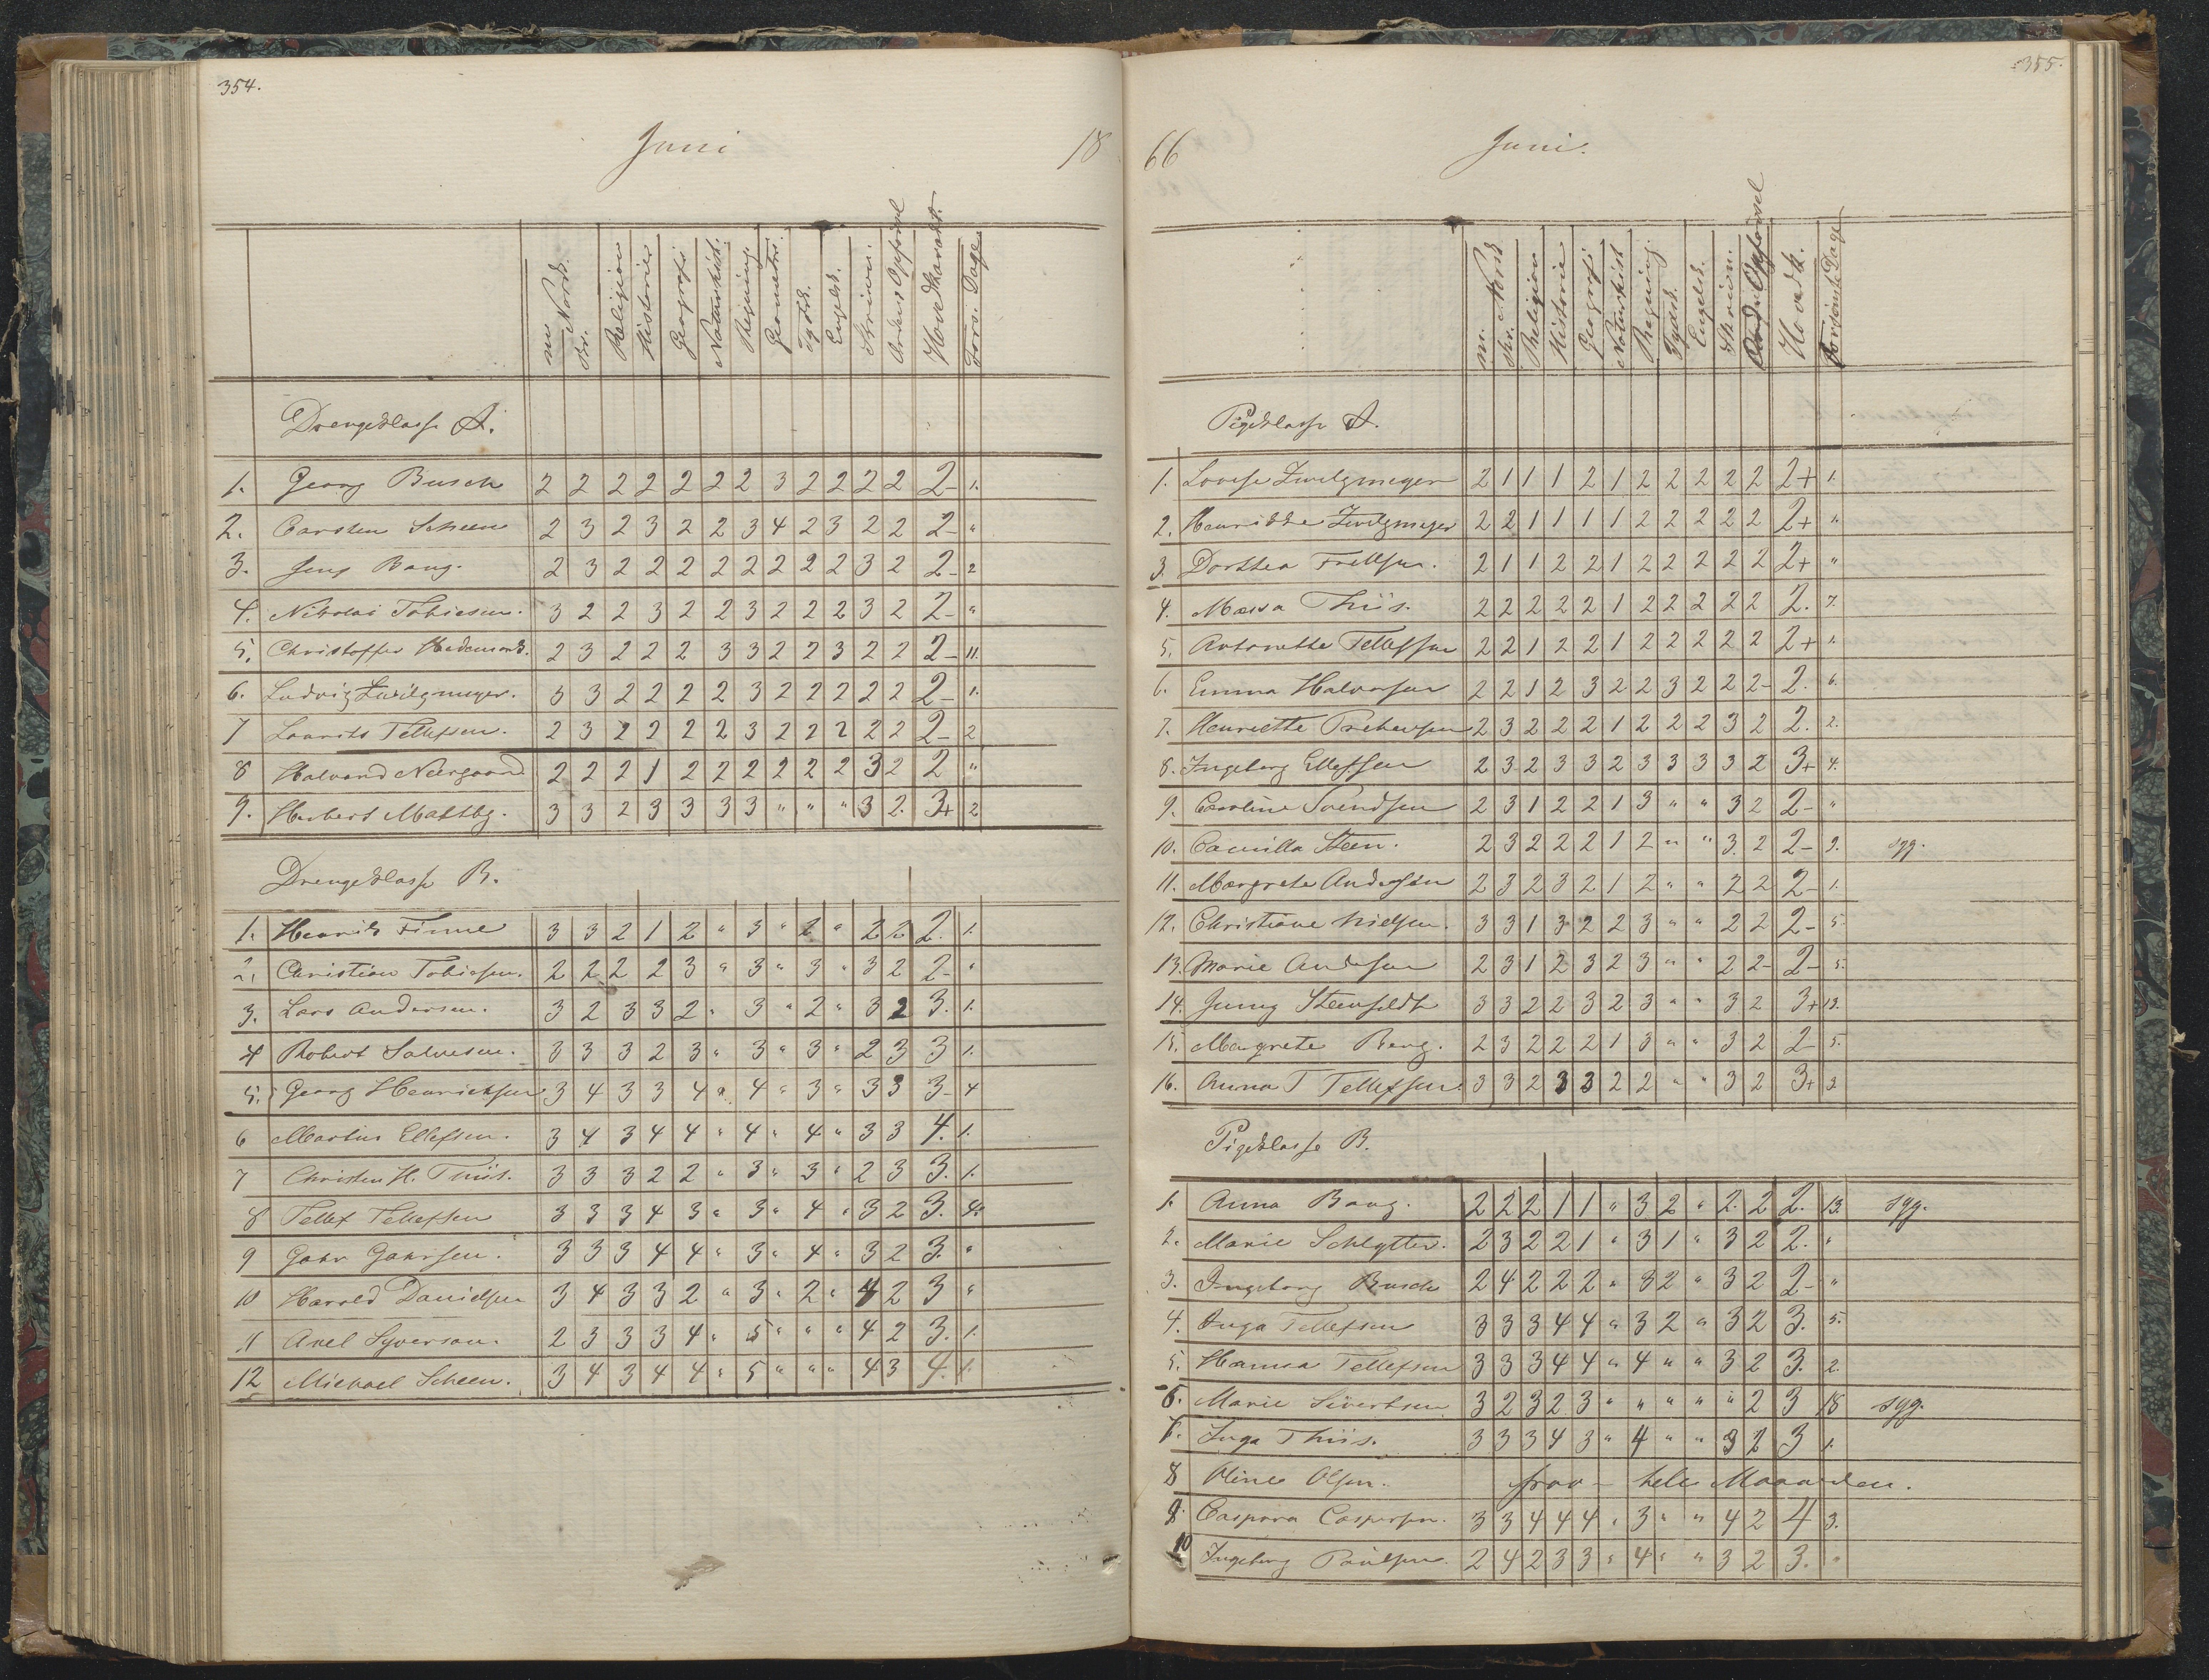 354.
Juni
18
m Norsk.
skr.
Religion
Historie
Geografi
Naturhist.
Regning
Geometri.
Tydsk.
Engelsk.
Skrivn.
Orden & Opførsel
Hovedkarakt.
Fors. Dage
Drengeklasse A.
1. Georg Busch 2 2 2 2 2 2 2 3 2 2 2 2 2- 1.
2. Carsten Scheen 2 3 2 3 2 2 3 4 2 3 2 2 2- "
3. Jens Bang. 2 3 2 2 2 2 2 2 2 2 3 2 2- 2
4. Nikolai Tobiesen. 3 2 2 3 2 2 3 2 2 2 3 2 2- "
5. Christoffer Hedemark. 2 3 2 2 2 3 3 2 2 3 2 2 2- 11.
6. Ludvig Zwilgmeyer. 3 3 2 2 2 2 3 2 2 2 2 2 2- 1.
7 Laurits Tellefsen. 2 3 2 2 2 2 3 2 2 2 2 2 2- 2
8 Halvard Neergaard 2 2 2 1 2 2 2 2 2 2 3 2 2 "
9. Herbert Maltbg. 3 3 2 3 3 3 3 " " " 3 2. 3+ 2
Drengeklasse B.
1. Henrik Finne 3 3 2 1 2 " 3 " 2 " 2 2 2. 1.
2. Christian Tobiesen. 2 2 2 2 3 " 3 " 3 " 3 2 2- "
3. Lars Andersen. 3 2 3 3 2 " 3 " 2 " 3 2 3. 1.
4 Robert Salvesen. 3 3 3 2 3 " 3 " 3 " 2 3 3 1.
5. Georg Henrichsen 3 4 3 3 4 " 4 " 3 " 3 3 3- 4
6 Martin Ellefsen. 3 4 3 4 4 " 4 " 4 " 3 3 4. 1.
7 Christen H. Thiis. 3 3 3 2 2 " 3 " 3 " 2 3 3. 1.
8 Tellef Tellefsen 3 3 3 4 3 " 3 " 4 " 3 2 3. 4.
9 Gahr Gahrsen. 3 3 3 4 4 " 3 " 4 " 3 2 3. "
10 Harald Danielsen 3 4 3 3 2 " 3 " 2 " 4 2 3 "
11 Axel Syverson. 2 3 3 3 4 " 5 " " " 4 2 3. 1.
12 Michael Scheen. 3 4 3 4 4 " 5 " " " 4 3 4. 1.
355.
66
Juni.
m. Norsk
skr.
Religion
Historie
Geografi
Naturhist
Regning.
Tydsk.
Engelsk.
Skrivn.
Orden & Opførsel
Hovedk.
Forsømte Dage
Pigeklasse A.
1. Lovise Zwilgmeyer 2 1 1 1 2 1 2 2 2 2 2 2+ 1.
2. Henrikke Zwilgmeyer 2 2 1 1 1 1 2 2 2 2 2 2+ "
3. Dorthea Trellsen. 2 1 1 2 2 1 2 2 2 2 2 2+ "
4. Massa Thiis. 2 2 2 2 2 1 2 2 2 2 2 2. 7.
5. Antonette Tellefsen 2 2 1 2 2 1 2 2 2 2 2 2+ 1.
6. Emma Halvorsen 2 2 1 2 3 2 2 3 2 2 2- 2. 6.
7. Henriette Prebensen 2 3 2 2 2 1 2 2 2 3 2 2. 2.
8. Ingeborg Ellefsen 2 3 2 3 3 2 3 3 3 3 2 3+ 4.
9. Caroline Svendsen 2 3 1 2 2 1 3 " " 3 2 2- "
10. Camilla Steen. 2 3 2 2 2 1 2 " " 3 2 2- 9. syg.
11. Margrete Andersen 2 3 2 3 2 1 2 " " 2 2 2- 1.
12. Christiane Nielsen. 3 3 1 3 2 2 3 " " 2 2 2- 5.
13. Marie Andersen 2 3 1 2 3 2 3 " " 2 2- 2- 5.
14. Jenny Steenfeldt 3 3 2 2 3 2 3 " " 3 2 3+ 13.
15. Margrete Berg. 2 3 2 2 2 1 3 " " 3 2 2- 5.
16. Anna T Tellefsen. 3 3 2 3 3 2 2 " " 3 2 3+ 3.
Pigeklasse B.
1. Anna Bang. 2 2 2 1 1 " 3 2 " 2 2 2. 13. syg.
2. Marie Schlytter. 2 3 2 2 1 " 3 1 " 3 2 2. "
3. Ingeborg Busch 2 4 2 2 2 " 3 2 " 3 2 2- "
4. Inga Tellefsen 3 3 3 4 4 " 3 2 " 3 2 3. 5.
5. Hanna Tellefsen 3 3 3 4 4 " 4 " " 3 2 3. 2.
6. Marie Sivertsen 3 2 3 2 3 " " " " " 2 3 18 syg.
7. Inga Thiis. 3 3 3 4 3 " 4 " " 3 2 3 1.
8 Oline Olsen. frav - hele Maaneden.
9. Caspara Caspersen. 3 3 4 4 4 " 3 " " 4 2 4 3.
10 Ingeborg Paulsen. 2 4 2 3 3 " 4 " " 3 2 3. "